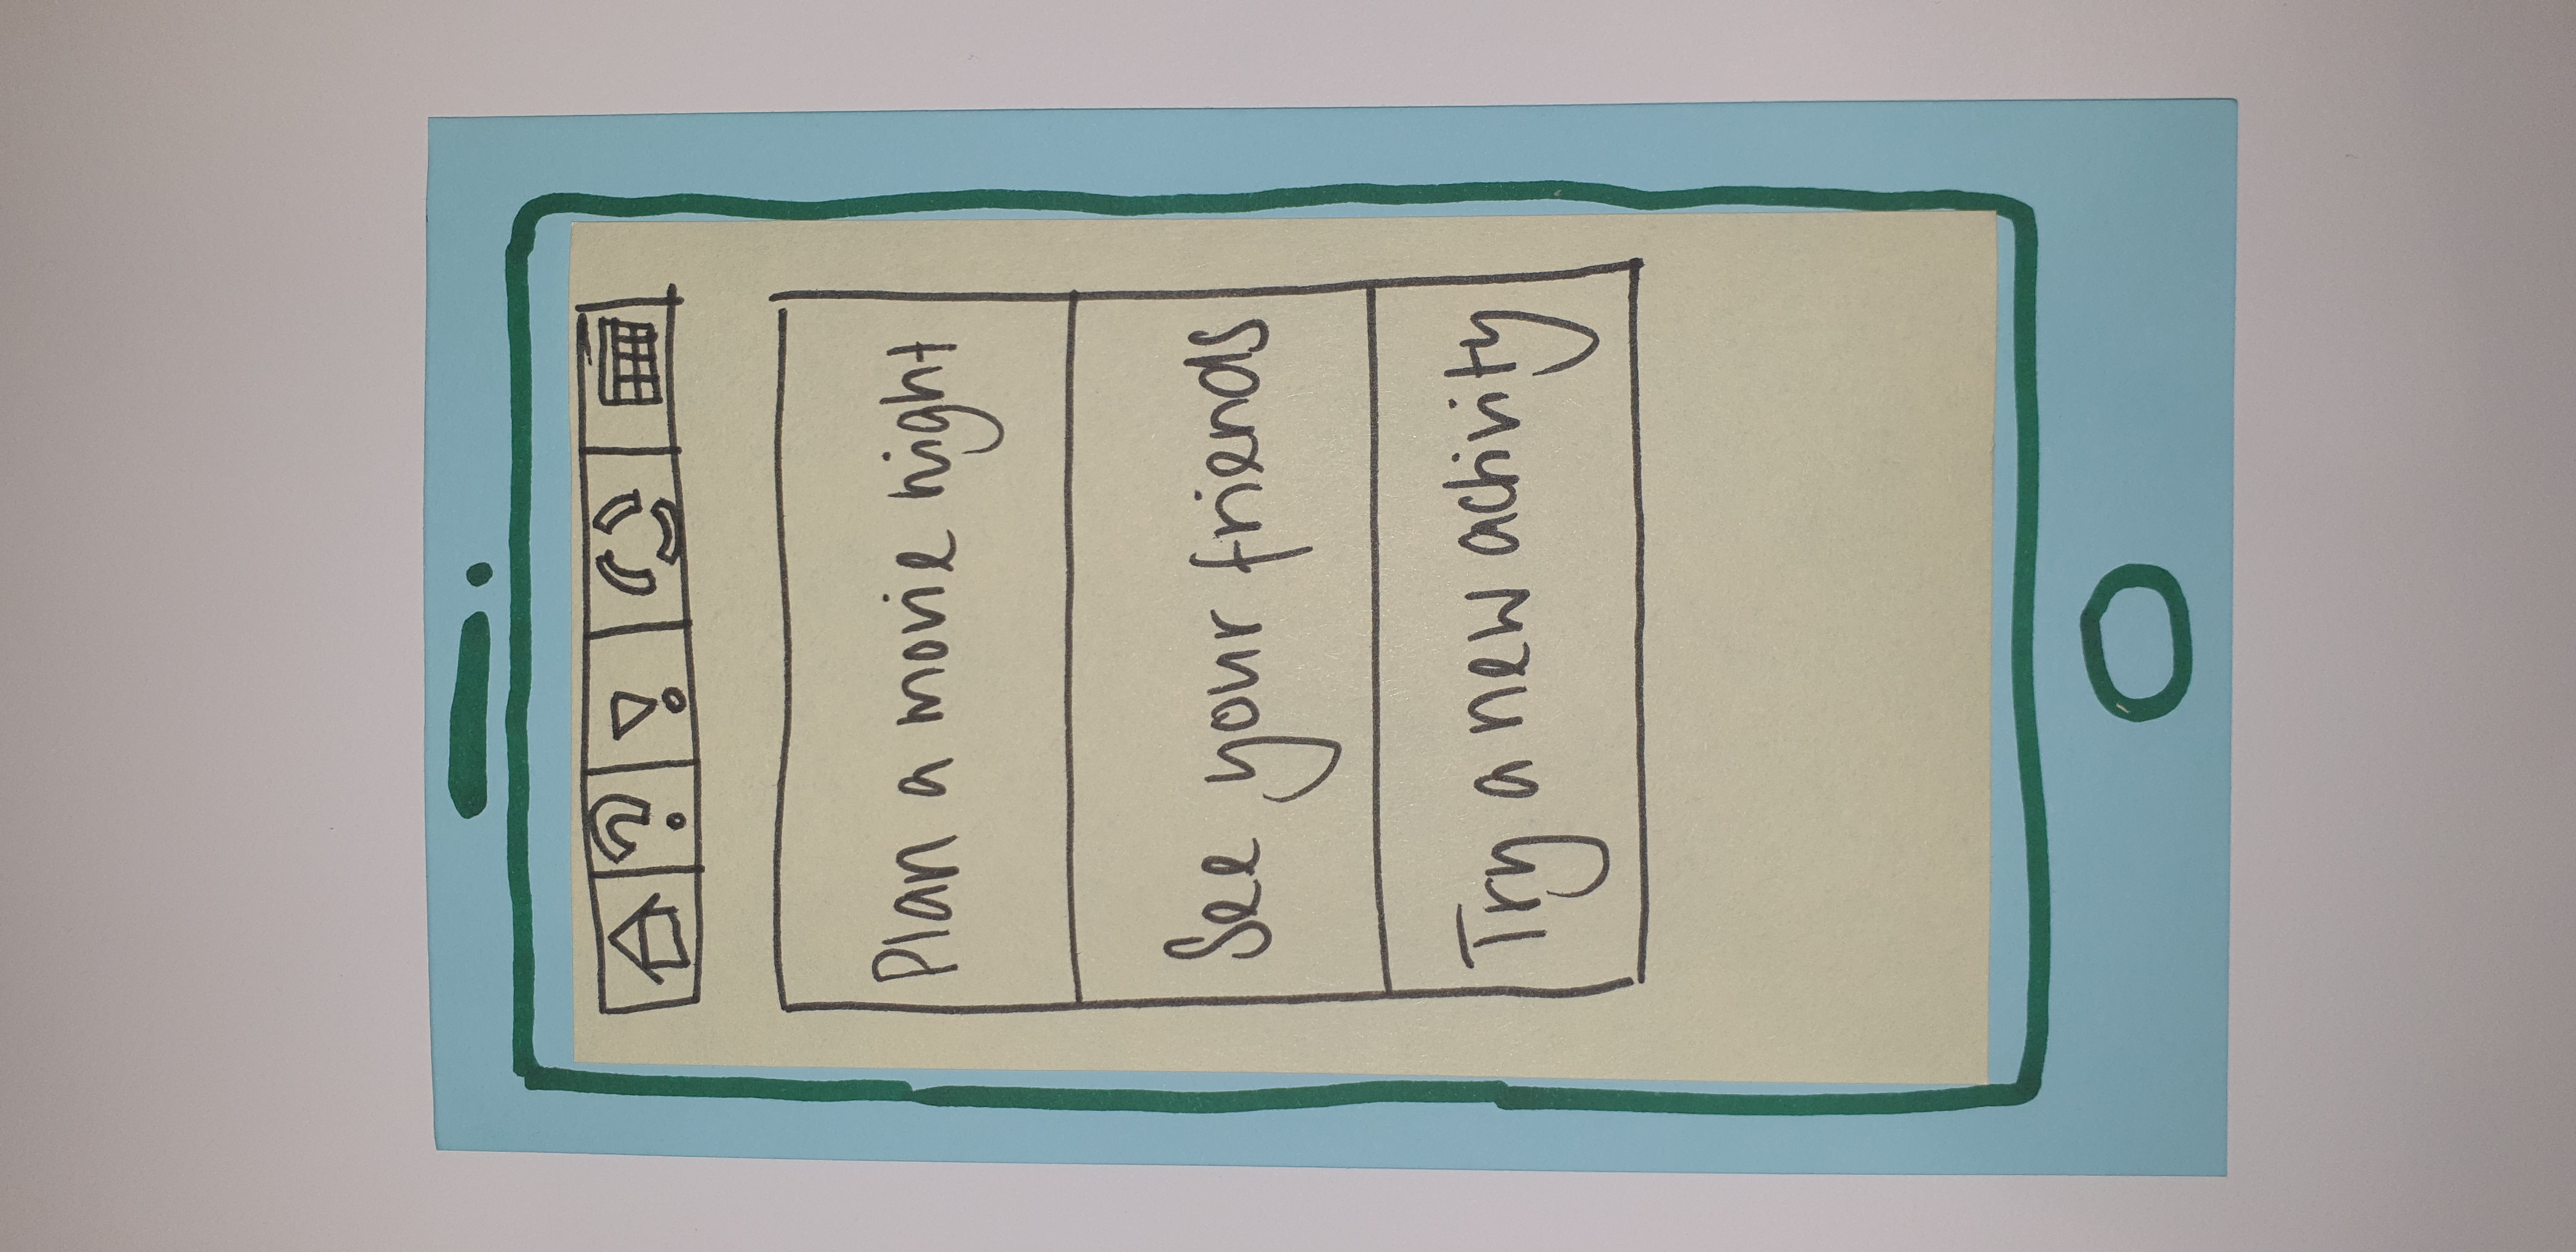 ? !
Plan a movie night
See your friends
Try a new activity